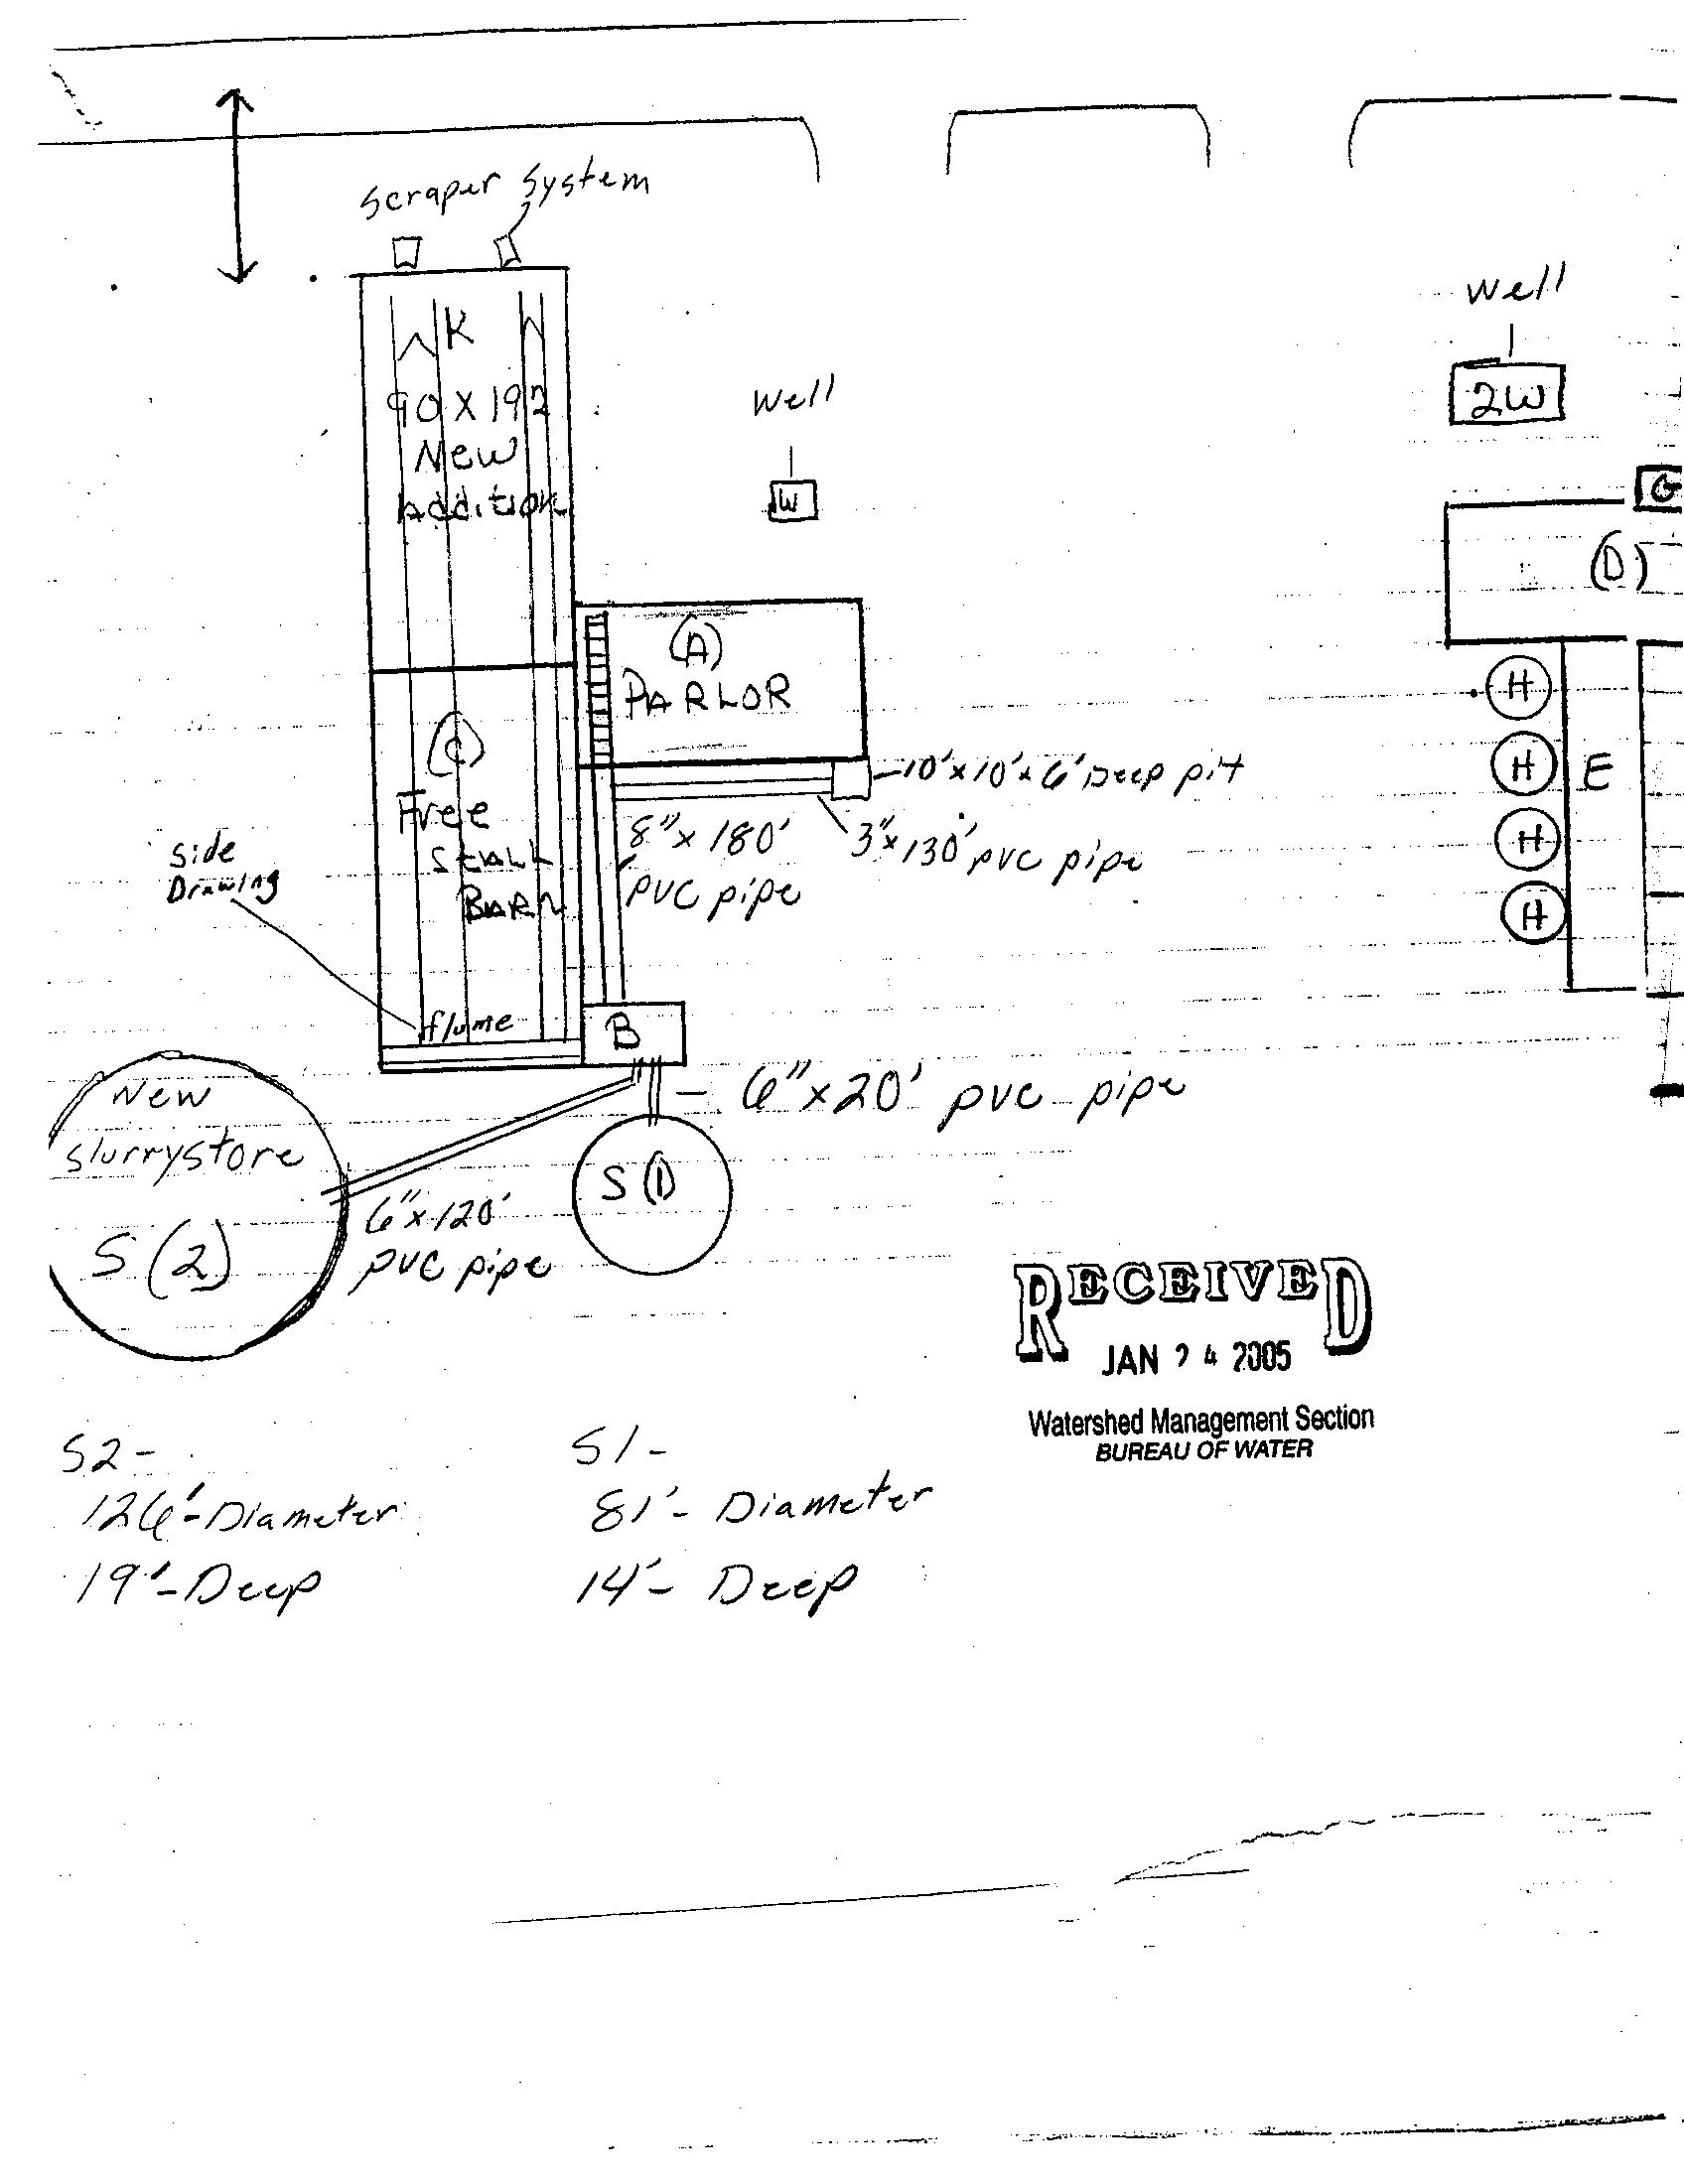 Scraper System
Well
2W
K
90 X 192
New
Addition
Well
W
G
(D)
(A)
PARLOR
H
H
H
H
E
10'x10'x6' Deep pit
(C)
Free
STALL
BARN
8"x 180'
PVC pipe
3"x130' pvc pipe
Side
Drawing
flume
B
6"x20' pvc pipe
New
Slurrystore
S (2)
S (1)
6"x120'
pvc pipe
RECEIVED
JAN 24 2005
Watershed Management Section
BUREAU OF WATER
S2-
126'-Diameter
19'-Deep
S1-
81'- Diameter
14'- Deep